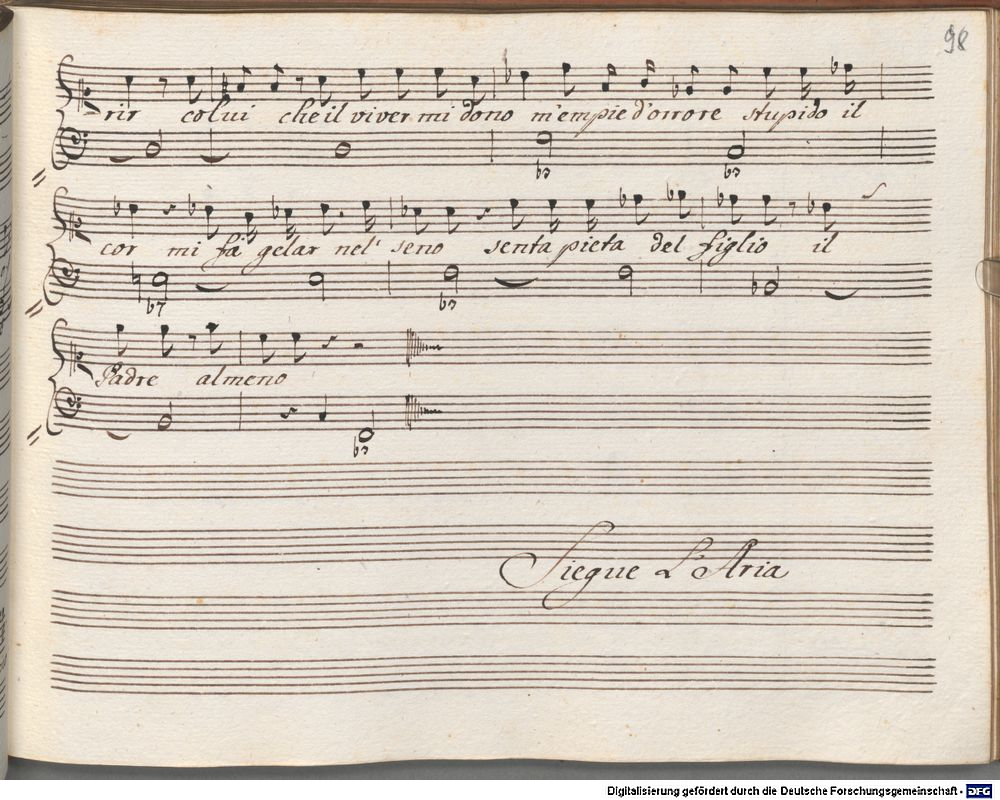 98
rir colui che il viver mi dono m'empie d'orrore stupido il
b3 b3
cor mi fà gelar nel' seno senta pieta del figlio il
b7 b3
Padre almeno
b3
Siegue L'Aria
Digitalisierung gefördert durch die Deutsche Forschungsgemeinschaft - DFG